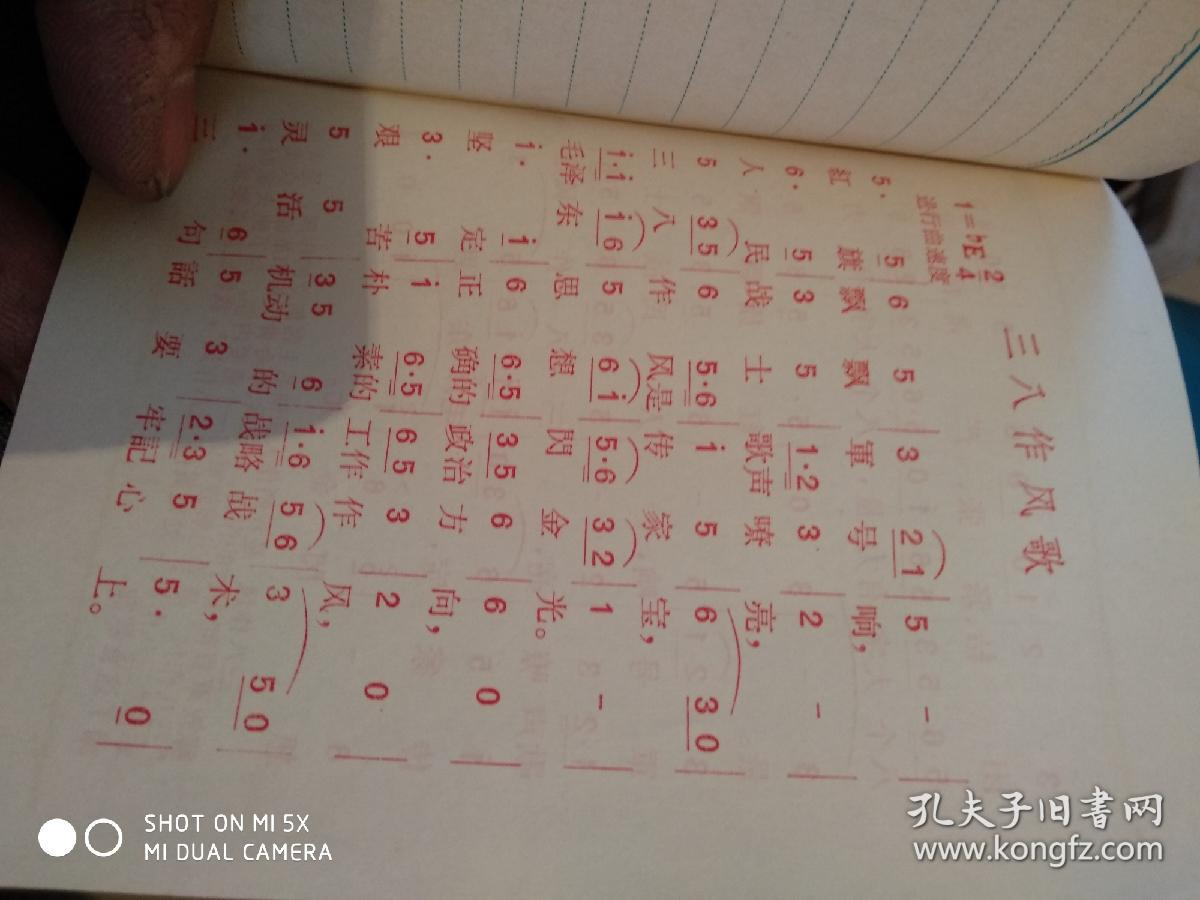 三八作风歌
1=♭E 2/4
进行曲速度
5. 5 | 6 5 | 3 2 1 | 5 - |
紅 旗 飘 飘 軍 号 响,
6. 5 | 3 5 | 1·2 3 | 2 - |
人 民 战 士 歌声 嘹 亮,
5 3 5 | 6 5·6 | i 5 | 6 3 0 |
三 八 作 风是 传 家 宝,
i·i i 6 | 5 6 i | 5·6 3 2 | 1 - |
毛泽 东 思 想 閃 金 光。
i. i | 6 6·5 | 3 5 6 | 6 0 |
坚 定 正 确的 政治 方 向,
3. 5 | i 6·5 | 6 5 3 | 2 0 |
艰 苦 朴 素的 工作 作 风,
5 5 | 3 5 6 | i·6 5 6 | 3 5 0 |
灵 活 机动 的 战略 战 术,
i. 6 | 5 3 | 2·3 5 | 5. 0 |
三 句 話 要 牢記 心 上。
SHOT ON MI 5X
MI DUAL CAMERA
孔夫子旧书网
www.kongfz.com